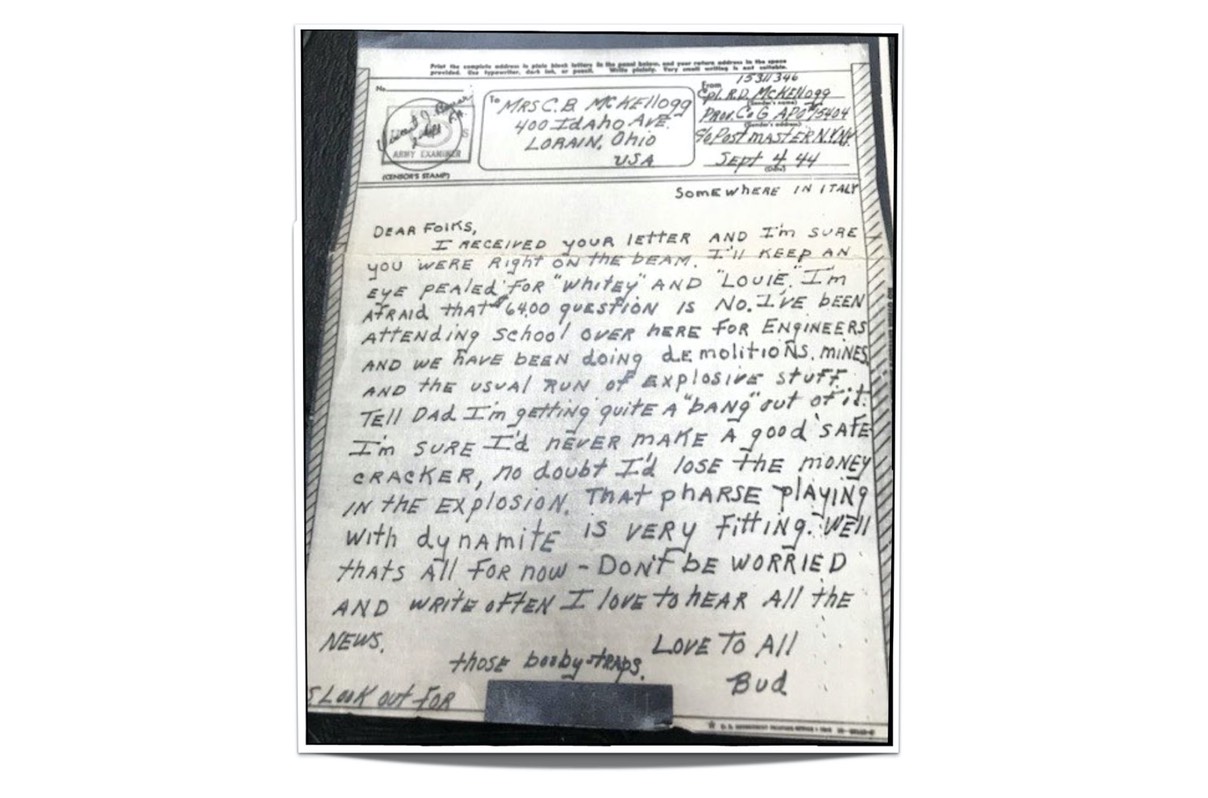 Print the complete address in plain block letters in the panel below, and your return address in the space
provided. Use typewriter, dark ink, or pencil. Write plainly. Very small writing is not suitable.
No.
ARMY EXAMINER
(CENSOR'S STAMP)
To
MRS C.B. McKELLOGG
400 IdAho AVE.
LORAIN, Ohio
USA
From
15311346
Cpl. R.D. McKEllogg
(Sender's name)
PROV. Co G APO 15404
(Sender's address)
c/o PostmASTER N.Y. N.Y.
Sept 4 44
(Date)
SOMEWHERE IN ITALY
DEAR FOlKS,
I RECEIVED YOUR LETTER AND I'm SURE
you WERE Right ON the BEAM. I'll KEEP AN
EYE PEALED FOR "WhitEy" AND "LOUIE". I'm
AFRAID that $64.00 question IS NO. I'VE BEEN
ATTENDING School OVER HERE FOR ENGINEERS
AND WE HAVE BEEN doing dEmolitioNS, MINES,
AND the USUAL RUN of EXplosIVE StuFF.
TELL DAd I'm gEtting quitE A "bANg" out of it.
I'm SURE I'd NEVER MAKE A good SAFE
CRACKER, no doubt I'd lOSE the MONEY
IN thE EXplosIoN. THAt pHARSE plAyING
With dynAmitE IS VERY Fitting. WEll
thAts All FoR now - DON't BE WORRIED
AND WRItE oFtEN I lovE to hEAR All thE
NEWS.
LovE To All
Bud
LooK out FoR
thosE booby-tRAps.